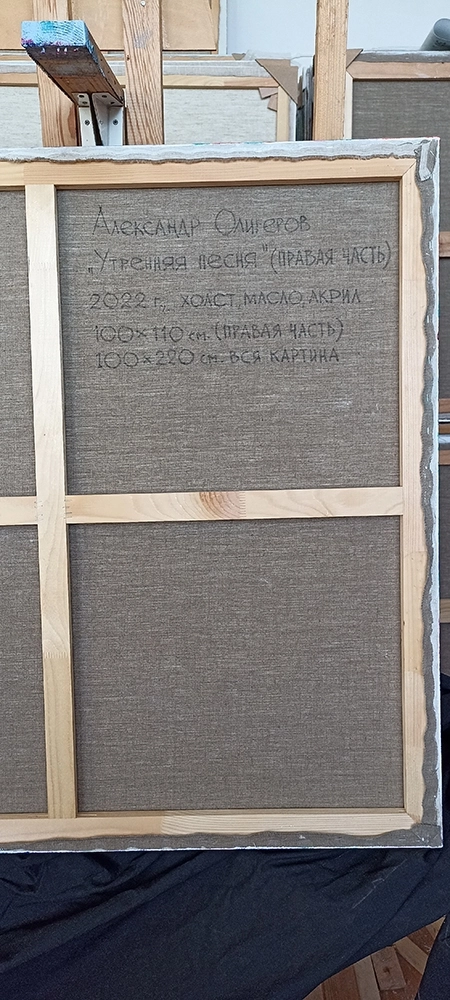 Александр Олигеров
„Утренняя песня" (правая часть)
2022 г., холст, масло, акрил
100×110 см. (правая часть)
100×220 см. вся картина